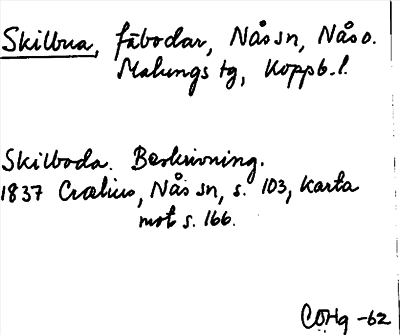 Skilbua, fäbodar, Nås sn, Nås o.
Malungs tg, Koppb. l.
Skilboda. Beskrivning.
1837 Crælius, Nås sn, s. 103, karta
mot s. 166.
CÖHg -62